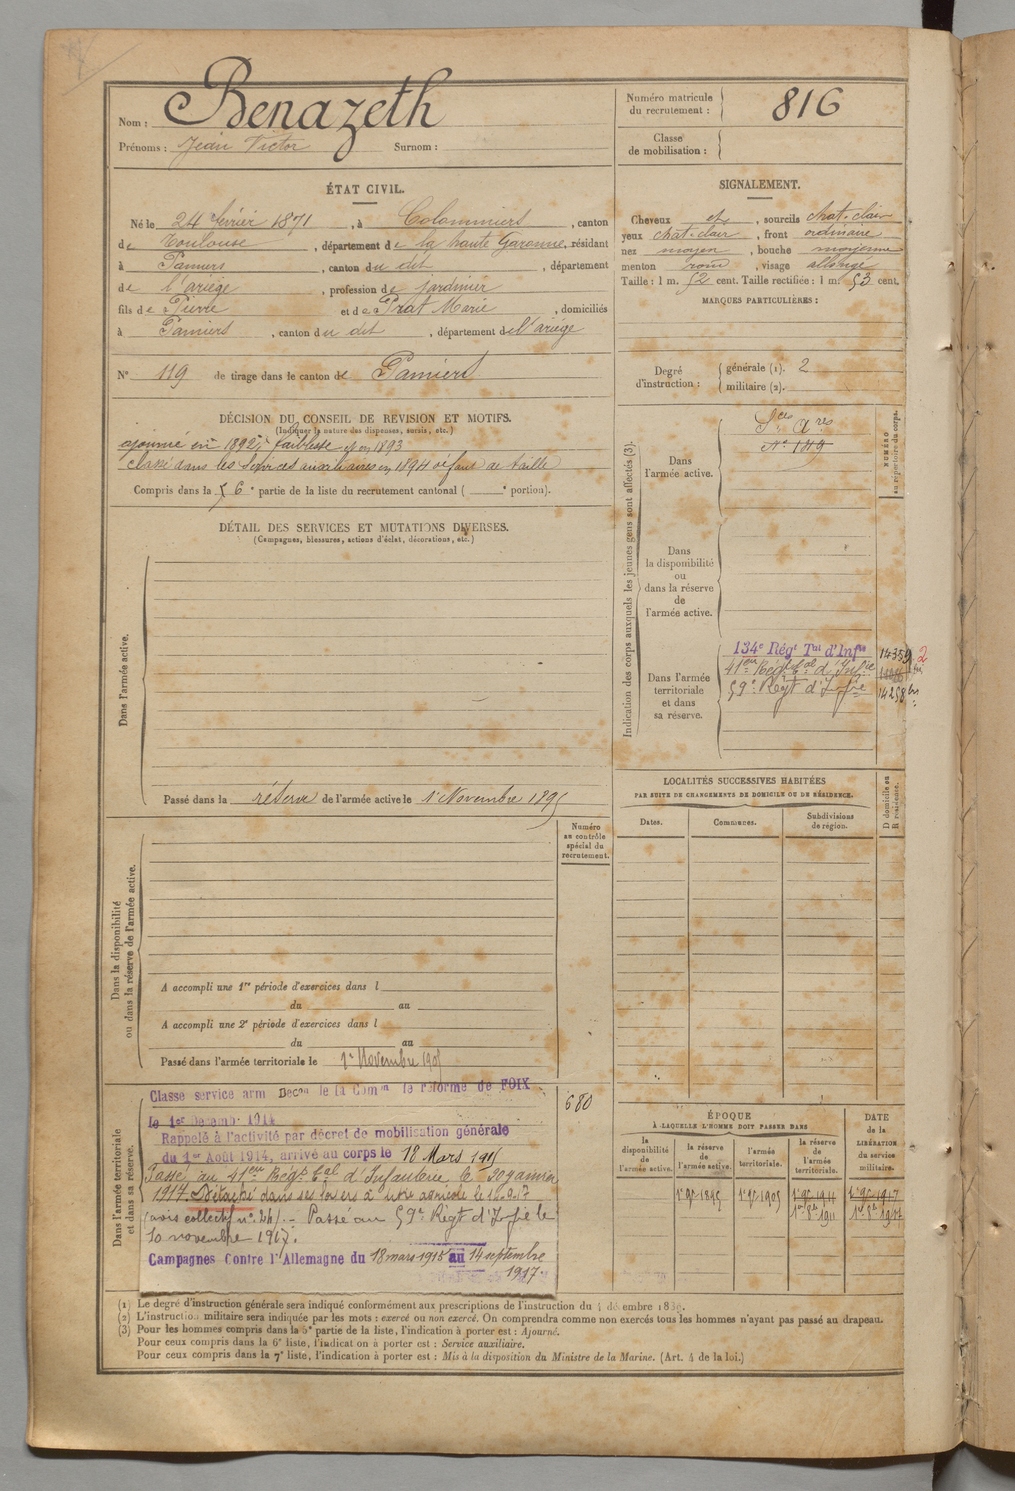 Nom : Benazeth
Prénoms : Jean Victor Surnom :
Numéro matricule
du recrutement : 816
Classe
de mobilisation :
ÉTAT CIVIL.
Né le 24 février 1871, à Colommiers, canton
de Toulouse, département de la haute Garonne, résidant
à Pamiers, canton du dit, département
de l'ariège, profession de jardinier
fils de Pierre et de Prat Marie, domiciliés
à Pamiers, canton du dit, département de l'ariège
N° 119 de tirage dans le canton de Pamiers
SIGNALEMENT.
Cheveux et, sourcils chat. clair
yeux chat. clair, front ordinaire
nez moyen, bouche moyenne
menton rond, visage allongé
Taille : 1 m. 52 cent. Taille rectifiée : 1 m. 53 cent.
MARQUES PARTICULIÈRES :
Degré
d'instruction :
générale (1). 2
militaire (2).
DÉCISION DU CONSEIL DE REVISION ET MOTIFS.
(Indiquer la nature des dispenses, sursis, etc.)
ajourné en 1892, faiblesse et en 1893
classé dans les services auxiliaires en 1894 défaut de taille
Compris dans la 6e partie de la liste du recrutement cantonal ( e portion).
DÉTAIL DES SERVICES ET MUTATIONS DIVERSES.
(Campagnes, blessures, actions d'éclat, décorations, etc.)
Dans l'armée active.
Passé dans la réserve de l'armée active le 1er Novembre 1895
Indication des corps auxquels les jeunes gens sont affectés (3).
NUMÉRO
au répertoire du corps.
Dans
l'armée active.
Sces Ares
N° 149
Dans
la disponibilité
ou
dans la réserve
de
l'armée active.
Dans l'armée
territoriale
et dans
sa réserve.
134e Régt Tal d'Infie
41eme Régt Cal d'Infie
59e Régt d'Infie
14258 bis
LOCALITÉS SUCCESSIVES HABITÉES
PAR SUITE DE CHANGEMENTS DE DOMICILE OU DE RÉSIDENCE.
D domicile ou
R résidence.
Dates.
Communes.
Subdivisions
de région.
Numéro
au contrôle
spécial du
recrutement.
Dans la disponibilité
ou dans la réserve de l'armée active.
A accompli une 1re période d'exercices dans l
du au
A accompli une 2e période d'exercices dans l
du au
Passé dans l'armée territoriale le 1er Novembre 1905
Dans l'armée territoriale
et dans sa réserve.
Classé service armé Décon de la Comon de réforme de FOIX
le 1er Décembre 1914
Rappelé à l'activité par décret de mobilisation générale
du 1er Août 1914, arrivé au corps le 18 Mars 1915
Passé au 41eme Régt Cal d'Infanterie le 30 janvier
1917. Détaché dans ses foyers à titre agricole le
(avis collectif n° 24). - Passé au 59e Régt d'Infie le
10 novembre 1917.
Campagnes Contre l'Allemagne du 18 mars 1915 au 14 septembre
1917.
680
ÉPOQUE
À LAQUELLE L'HOMME DOIT PASSER DANS
DATE
de la
LIBÉRATION
du service
militaire.
la
disponibilité
de
l'armée active.
la réserve
de
l'armée active.
l'armée
territoriale.
la réserve
de
l'armée
territoriale.
1er 9bre 1895
1er 9bre 1905
1er 9bre 1911
1er 9bre 1917
1er 8bre 1911
1er 8bre 1917
(1) Le degré d'instruction générale sera indiqué conformément aux prescriptions de l'instruction du 4 décembre 1889.
(2) L'instruction militaire sera indiquée par les mots : exercé ou non exercé. On comprendra comme non exercés tous les hommes n'ayant pas passé au drapeau.
(3) Pour les hommes compris dans la 5e partie de la liste, l'indication à porter est : Ajourné.
Pour ceux compris dans la 6e liste, l'indication à porter est : Service auxiliaire.
Pour ceux compris dans la 7e liste, l'indication à porter est : Mis à la disposition du Ministre de la Marine. (Art. 4 de la loi.)